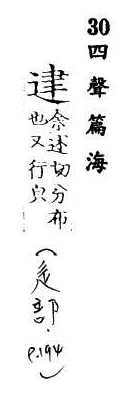 30 四聲篇海
䢖
余述切分布
也又行皃
(辵部. P.194)